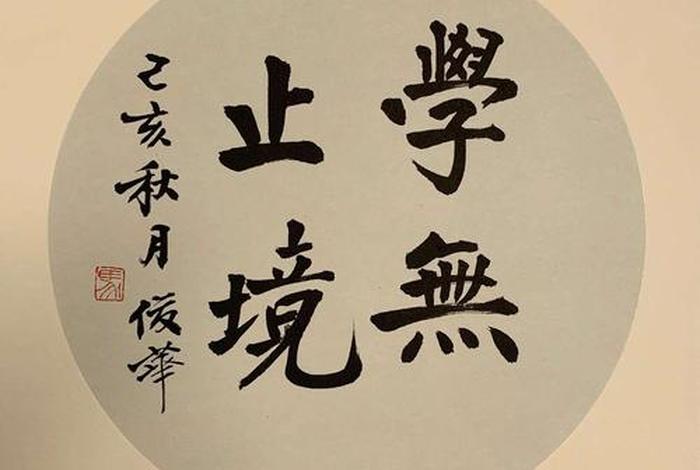 學無
止境
己亥秋月俊華